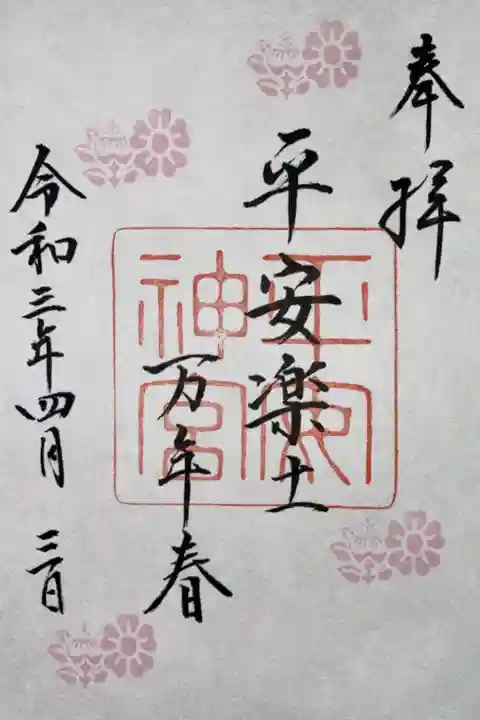 奉拝
平安楽土
万年春
平安神宮
令和三年四月三日